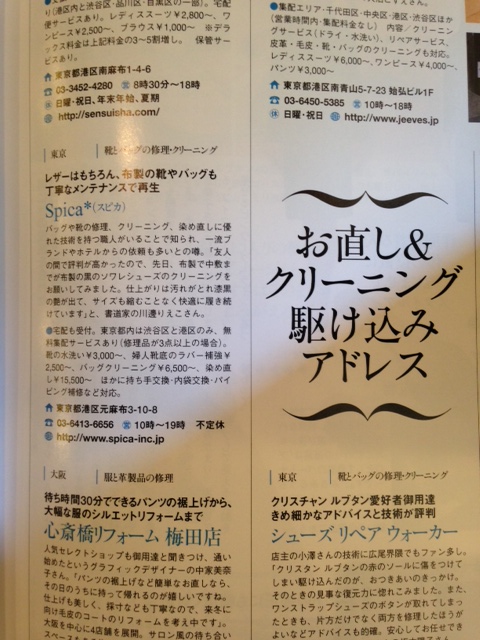 便サービスあり。レディススーツ¥2,800〜、ワ
ンピース¥2,500〜、ブラウス¥1,000〜 ※デラ
ックス料金は上記料金の3〜5割増し。 保管サー
ビスあり。
東京都港区南麻布1-4-6
03-3452-4280 8時30分〜18時
休 日曜・祝日、年末年始、夏期
http://sensuisha.com/
東京 靴とバッグの修理・クリーニング
レザーはもちろん、布製の靴やバッグも
丁寧なメンテナンスで再生
Spica*(スピカ)
バッグや靴の修理、クリーニング、染め直しに優
れた技術を持つ職人がいることで知られ、一流ブ
ランドやホテルからの依頼も多いとの噂。「友人
の間で評判が高かったので、先日、布製で中敷ま
でが布製の黒のソワレシューズのクリーニングを
お願いしてみました。仕上がりは汚れがとれ漆黒
の艶が出て、サイズも縮むことなく快適に履き続
けています」と、書道家の川邊りえこさん。
●宅配も受付。東京都内は渋谷区と港区のみ、無
料集配サービスあり(修理品が3点以上の場合)。
靴の水洗い¥3,000〜、婦人靴底のラバー補強¥
2,500〜、バッグクリーニング¥6,500〜、染め直
し¥15,500〜 ほかに持ち手交換・内袋交換・パイ
ピング補修など対応。
東京都港区元麻布3-10-8
03-6413-6656 10時〜19時 不定休
http://www.spica-inc.jp
大阪 服と革製品の修理
待ち時間30分でできるパンツの裾上げから、
大幅な服のシルエットリフォームまで
心斎橋リフォーム 梅田店
人気セレクトショップも御用達と聞きつけ、通い
始めたというグラフィックデザイナーの中家美奈
子さん。「パンツの裾上げなど簡単なお直しなら、
その日のうちに持って帰れるのが嬉しいですね。
仕上がりも美しく、採寸なども丁寧なので、来冬に
向け毛皮のコートのリフォームを考え中です」。
大阪を中心に4店舗を展開。サロン風の待ち合い
●集配エリア・千代田区・中央区・港区・渋谷区ほか
(営業時間内・集配料金なし) 内容/クリーニン
グサービス(ドライ・水洗い)、リペアサービス、
皮革・毛皮・靴・バッグのクリーニングも対応。
レディススーツ¥6,000〜、ワンピース¥4,000〜、
パンツ¥3,000〜
東京都港区南青山5-7-23 始弘ビル1F
03-6450-5385 10時〜18時
休 日曜・祝日 http://www.jeeves.jp
お直し&
クリーニング
駆け込み
アドレス
東京 靴とバッグの修理・クリーニング
クリスチャン ルブタン愛好者御用達
きめ細かなアドバイスと技術が評判
シューズ リペア ウォーカー
店主の小澤さんの技術に広尾界隈でもファン多し。
「クリスタン ルブタンの赤のソールに傷をつけて
しまい駆け込んだのが、おつきあいのきっかけ。
そのときの見事な復元力に惚れこみました。また、
ワンストラップシューズのボタンが取れてしまっ
たときも、片方だけでなく両方を修理したほうが
よいなどアドバイスも的確。安心してお任せでき